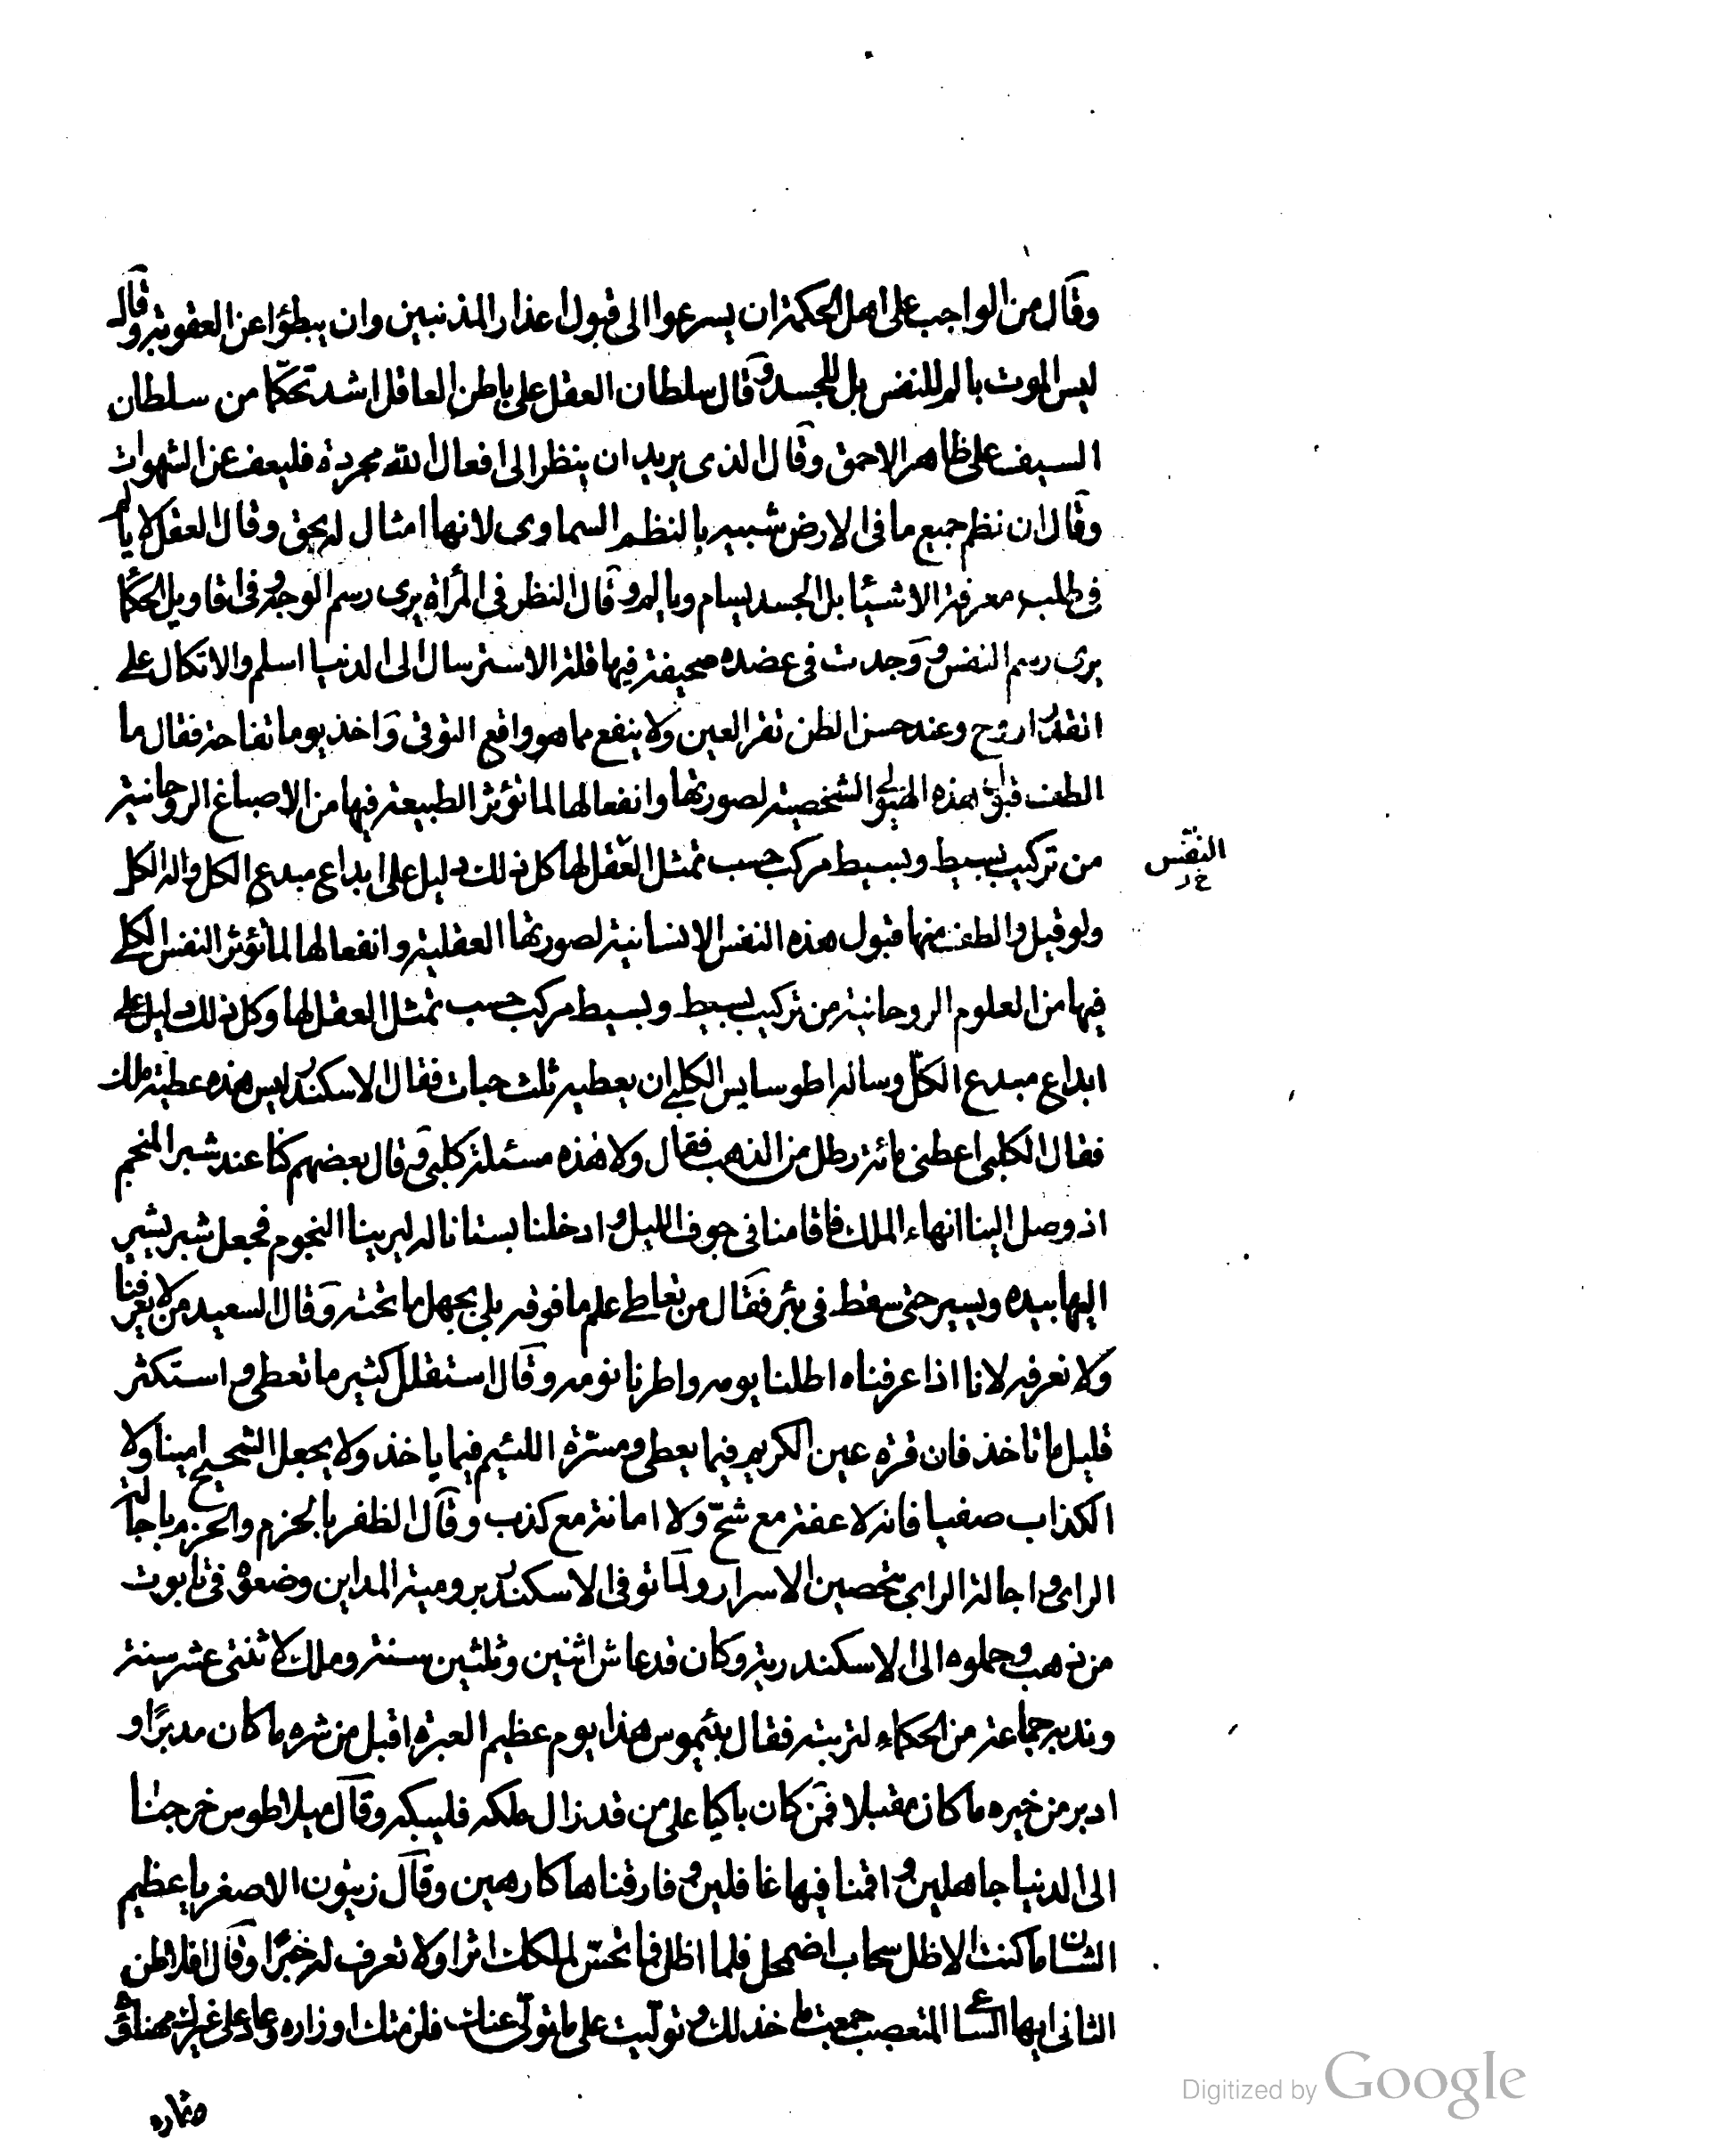 وقال من الواجب على اهل الحكمة ان يسرعوا الى قبول اعذار المذنبين وان يبطؤا عن العقوبة وقال
ليس الموت بالم للنفس بل للجسد وقال سلطان العقل على باطن العاقل اشد تحكما من سلطان
السيف على ظاهر الاحمق وقال الذى يريد ان ينظر الى افعال الله مجردة فليعف عن الشهوات
وقال ان نظم جميع ما فى الارض شبيه بالنظم السماوى لانها امثال له بحق وقال العقل لا يألم
فى طلب معرفة الاشيا بل الجسد يسام ويالم وقال النظر فى المرأة يرى رسم الوجه وفى اقاويل الحكما
يرى رسم النفس ووجدت فى عضده صحيفة فيها قلة الاسترسال الى الدنيا اسلم والاتكال على
القدر اروح وعند حسن الظن تقر العين ولا ينفع مما هو واقع التوقى واخذ يوما تفاحة فقال ما
الطف قبول هذه الهيولى الشخصية لصورتها وانفعالها لما تؤثر الطبيعة فيها من الاصباغ الروحانية
من تركيب بسيط وبسيط مركب حسب تمثل العقل لها كل ذلك دليل على ابداع مبدع الكل واله الكل
النفس
خ ر
ولو قيل والطف منها قبول هذه النفس الانسانية لصورتها العقلية وانفعالها لما تؤثر النفس الكلى
فيها من العلوم الروحانية من تركيب بسيط وبسيط مركب حسب تمثل العقل لها وكل ذلك دليل على
ابداع مبدع الكل وساله اطوسايس الكلبى ان يعطيه ثلث حبات فقال الاسكندر ليس هذه عطية ملك
فقال الكلبى اعطنى مائة رطل من الذهب فقال ولا هذه مسئلة كلبى وقال بعضهم كنا عند شبر المنجم
اذ وصل الينا انهاء الملك فاقامنا فى جوف الليل وادخلنا بستانا له ليرينا النجوم فجعل شبر يشير
اليها بيده ويسير حتى سقط فى بئر فقال من تعاطى علم ما فوقه بلى بجهل ما تحته وقال السعيد من لا يعرفنا
ولا نعرفه لانا اذا عرفناه اطلنا يومه واطرنا نومه وقال استقلل كثير ما تعطى واستكثر
قليل ما تاخذ فان قرة عين الكريم فيما يعطى ومسرة اللئيم فيما ياخذ ولا يجعل الشحيح امينا ولا
الكذاب صفيا فانه لا عفة مع شح ولا امانة مع كذب وقال الظفر بالحزم والحزم باجالة
الراى واجالة الراى بتحصين الاسرار ولما توفى الاسكندر برومية المداين وضعوه فى تابوت
من ذهب وحملوه الى الاسكندرية وكان قد عاش اثنين وثلثين سنة وملك لاثنتى عشر سنة
وندبه جماعة من الحكماء لتربيته فقال بئيموس هذا يوم عظيم العبرة اقبل من شره ما كان مدبرا و
ادبر من خيره ما كان مقبلا فمن كان باكيا على من قد زال ملكه فليبكه وقال ميلاطوس خرجنا
الى الدنيا جاهلين واقمنا فيها غافلين وفارقناها كارهين وقال زينون الاصغر يا عظيم
الشان ما كنت الا ظل سحاب اضمحل فلما اظل فما نحس لملكك اثرا ولا نعرف له خبرا وقال افلاطن
الثانى ايها الساعى المتعصب جمعت ما خذلك وتوليت على ما تولى عنك فلزمتك اوزاره وعاد على غيرك مهناؤه